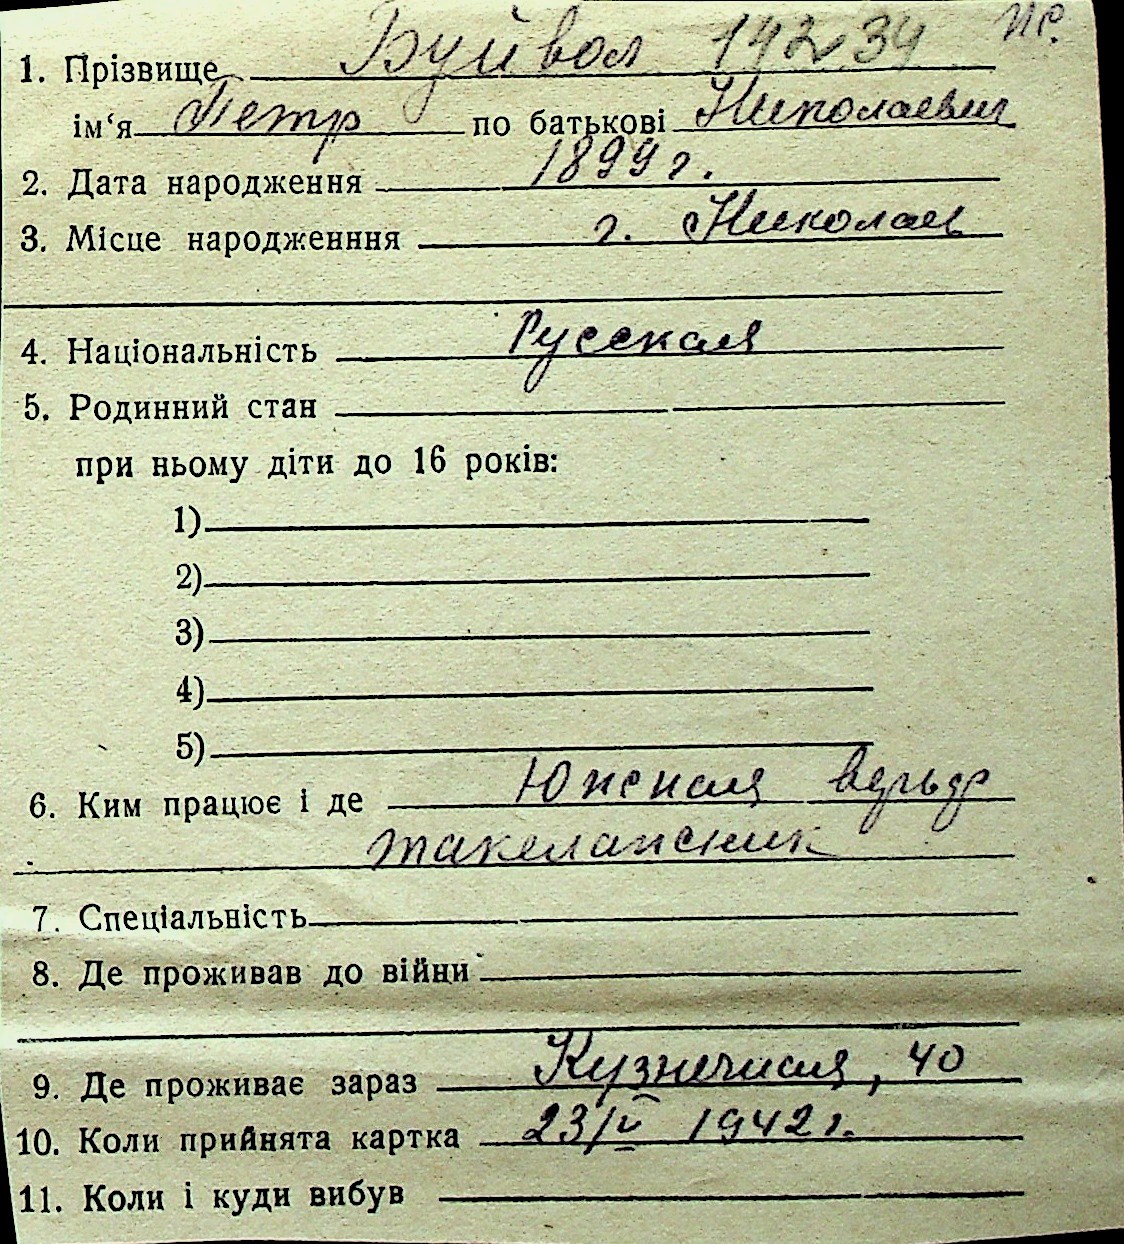 1. Прізвище Буйвол 14234 ПС.
ім‘я Петр по батькові Николаевич
2. Дата народження 1899 г.
3. Місце народженння г. Николаев
4. Національність Русская
5. Родинний стан
при ньому діти до 16 років:
1)
2)
3)
4)
5)
6. Ким працює і де Южная верфь
такелажник
7. Спеціальність
8. Де проживав до війни
9. Де проживає зараз Кузнечная, 40
10. Коли прийнята картка 23/IV 1942 г.
11. Коли і куди вибув